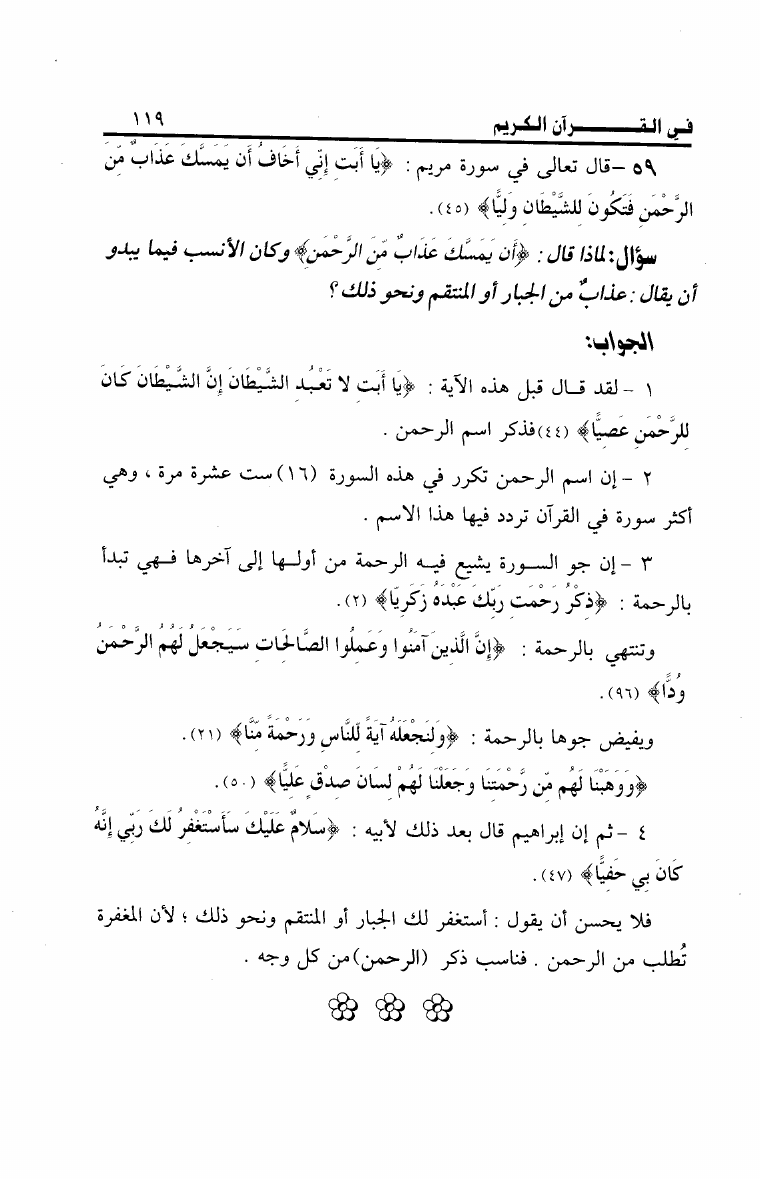 في القـــــــرآن الكريم ١١٩
٥٩ -قال تعالى في سورة مريم : ﴿يَا أَبَتِ إِنِّي أَخَافُ أَن يَمَسَّكَ عَذَابٌ مِّنَ
الرَّحْمَنِ فَتَكُونَ لِلشَّيْطَانِ وَلِيًّا﴾ (٤٥).
سؤال: لماذا قال : ﴿أَن يَمَسَّكَ عَذَابٌ مِّنَ الرَّحْمَنِ﴾ وكان الأنسب فيما يبدو
أن يقال : عذابٌ من الجبار أو المنتقم ونحو ذلك ؟
الجواب:
١ - لقد قـال قبل هذه الآية : ﴿يَا أَبَتِ لا تَعْبُدِ الشَّيْطَانَ إِنَّ الشَّيْطَانَ كَانَ
لِلرَّحْمَنِ عَصِيًّا﴾ (٤٤)فذكر اسم الرحمن .
٢ - إن اسم الرحمن تكرر في هذه السورة (١٦) ست عشرة مرة ، وهي
أكثر سورة في القرآن تردد فيها هذا الاسم .
٣ - إن جو السـورة يشيع فيـه الرحمة من أولـها إلى آخرها فـهي تبدأ
بالرحمة : ﴿ذِكْرُ رَحْمَتِ رَبِّكَ عَبْدَهُ زَكَرِيَّا﴾ (٢).
وتنتهي بالرحمة : ﴿إِنَّ الَّذِينَ آمَنُوا وَعَمِلُوا الصَّالِحَاتِ سَيَجْعَلُ لَهُمُ الرَّحْمَنُ
وُدًّا﴾ (٩٦).
ويفيض جوها بالرحمة : ﴿وَلِنَجْعَلَهُ آيَةً لِّلنَّاسِ وَرَحْمَةً مِّنَّا﴾ (٢١).
﴿وَوَهَبْنَا لَهُم مِّن رَّحْمَتِنَا وَجَعَلْنَا لَهُمْ لِسَانَ صِدْقٍ عَلِيًّا﴾ (٥٠).
٤ - ثم إن إبراهيم قال بعد ذلك لأبيه : ﴿سَلامٌ عَلَيْكَ سَأَسْتَغْفِرُ لَكَ رَبِّي إِنَّهُ
كَانَ بِي حَفِيًّا﴾ (٤٧).
فلا يحسن أن يقول : أستغفر لك الجبار أو المنتقم ونحو ذلك ؛ لأن المغفرة
تُطلب من الرحمن . فناسب ذكر (الرحمن)من كل وجه .